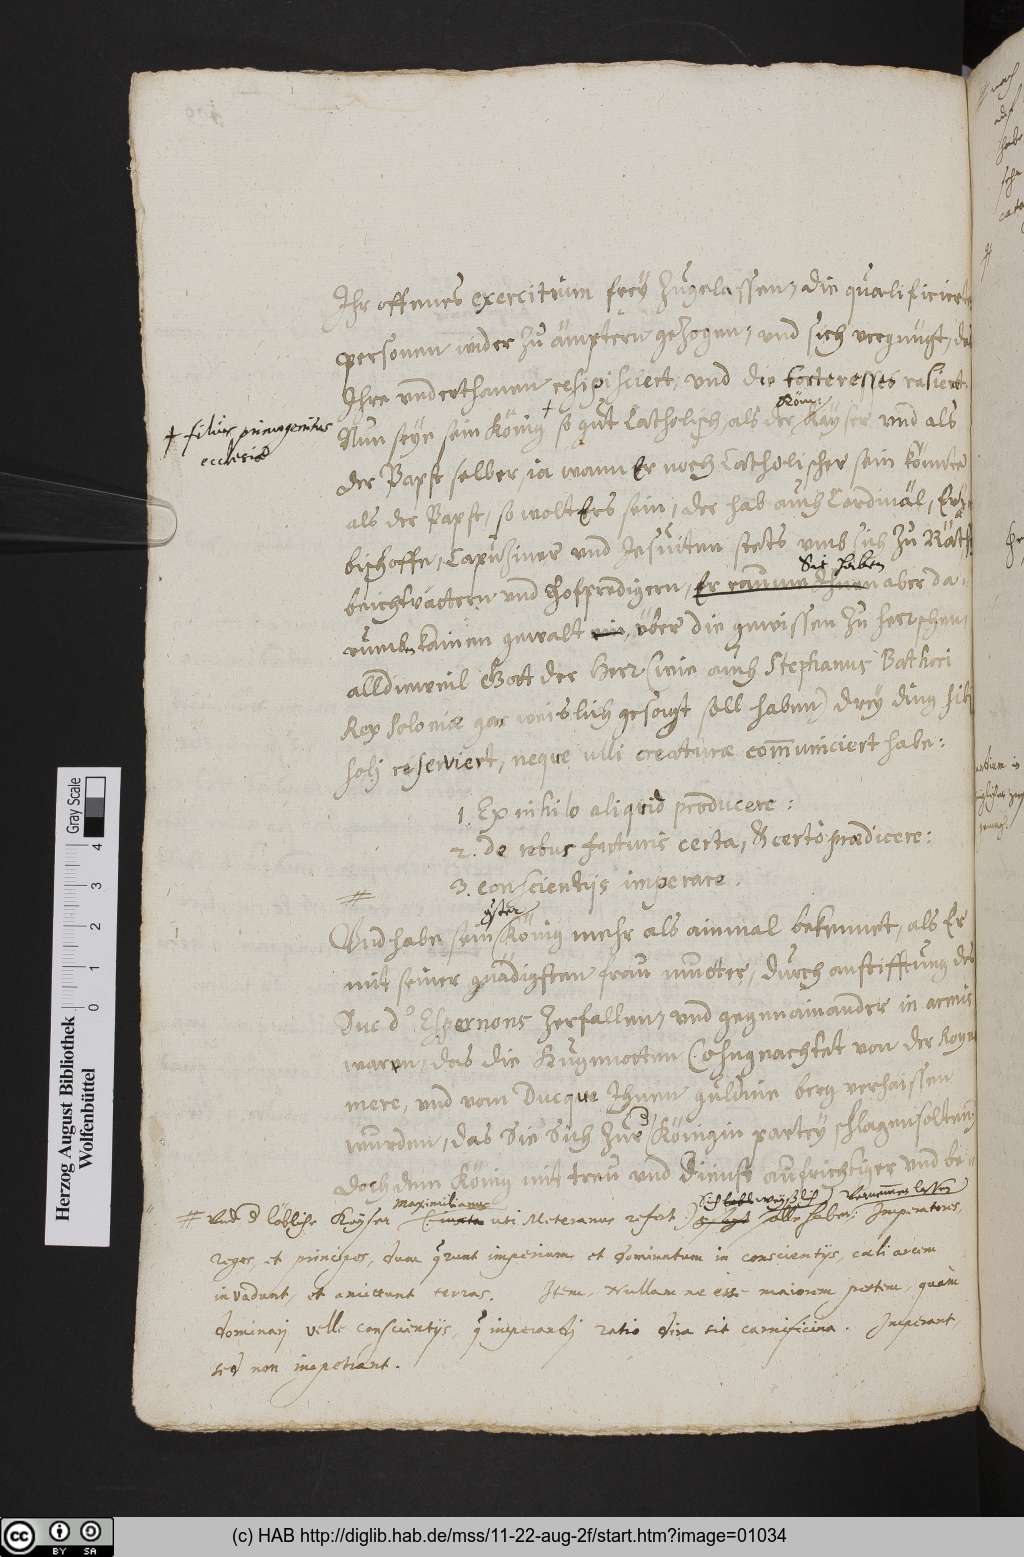 Ihr offenes exercitium frey zugelassen, die qualificierte
personen wider zu ämptern gezogen, und sich vergnügt, das
Ihre underthanen resipisciert, und die forteresses rasiert.
Röm:
Nun seye sein König † so gut Catholisch, als der Kayser und als
† filius primogenitus
ecclesiæ
der Papst selber, ja wann Er noch Catholischer sein könnte
als der Papst, so wolt Ers sein, der hab auch Cardinäl, Ertz-
bischoffe, Capuciner und Jesuiten stets umb sich zu Räth
Sie haben
beichtvättern und hofpredigern, Er raume Ihnen aber da-
rumb kainen gewalt ein, über die gewissen zu herrschen,
alldieweil Gott der Herr (wie auch Stephanus Bathori
Rex Poloniæ gar weislich gesagt soll haben) drey ding sibi
soli reserviert, neque ulli creaturæ communiciert habe:
1. Ex nihilo aliquid producere:
2. de rebus futuris certa, & certò prædicere:
3. conscientijs imperare.
#
Und habe sein König mehr als ainmal bekennet, als Er
mit seiner gnädigsten frau mutter, durch anstifftung des
Duc d'Espernons zerfallen, und gegenainander in armis
waren, das die Hugenotten (ohngeachtet von der Royne
mere, und vom Ducque Ihnen guldine berg verhaissen
wurden, das Sie Sich zur Königin partey schlagen solten)
doch dem König mit treu und dienst aufrichtiger und be-
Maximilianus
# Und d löbliche Kayser uti Meteranus refert) solle haben: Imperatores,
reges, et principes, dum qrunt imperium et dominatum in conscientijs, cæli arcem
invadunt, et amittunt terras. Item, Nullam ne esse maiorem pestem, quàm
dominarj velle conscientijs, q imperandj ratio dira sit carnificina. Imperant,
sed non impetrant.
Herzog August Bibliothek
Wolfenbüttel
Gray Scale
0 1 2 3 4
(c) HAB http://diglib.hab.de/mss/11-22-aug-2f/start.htm?image=01034
cc BY SA